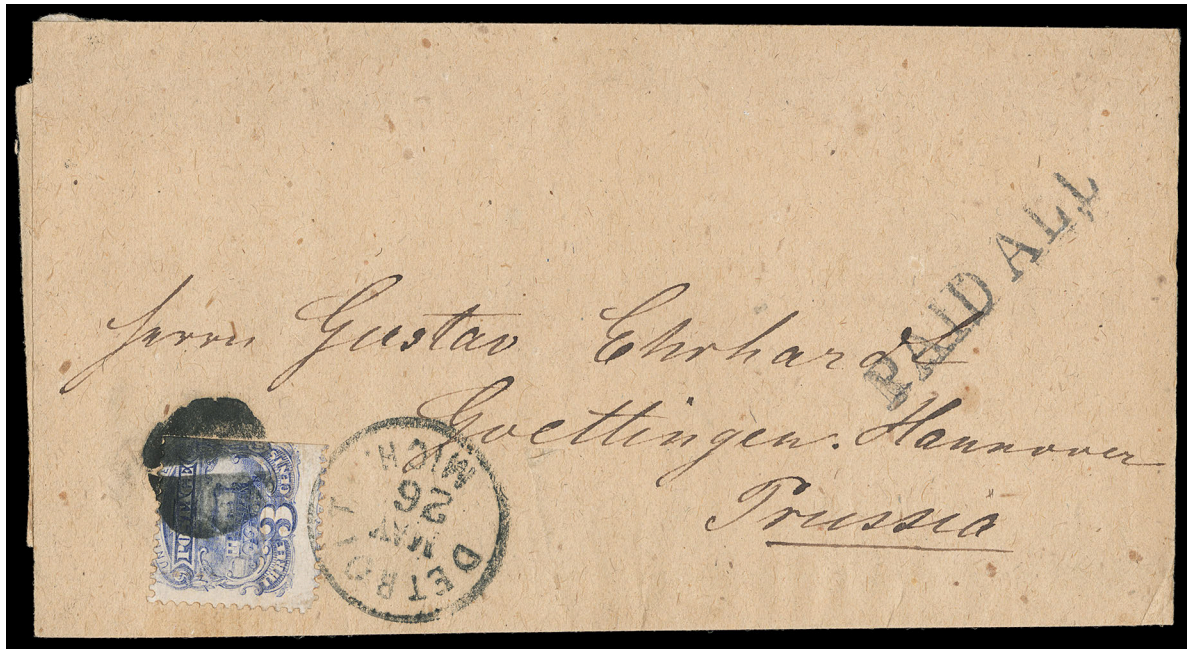 PAID ALL
Herrn Gustav Ehrhardt
Goettingen. Hannover
Prussia
DETROIT MICH.
MAY
26
POSTAGE
3
THREE CENTS